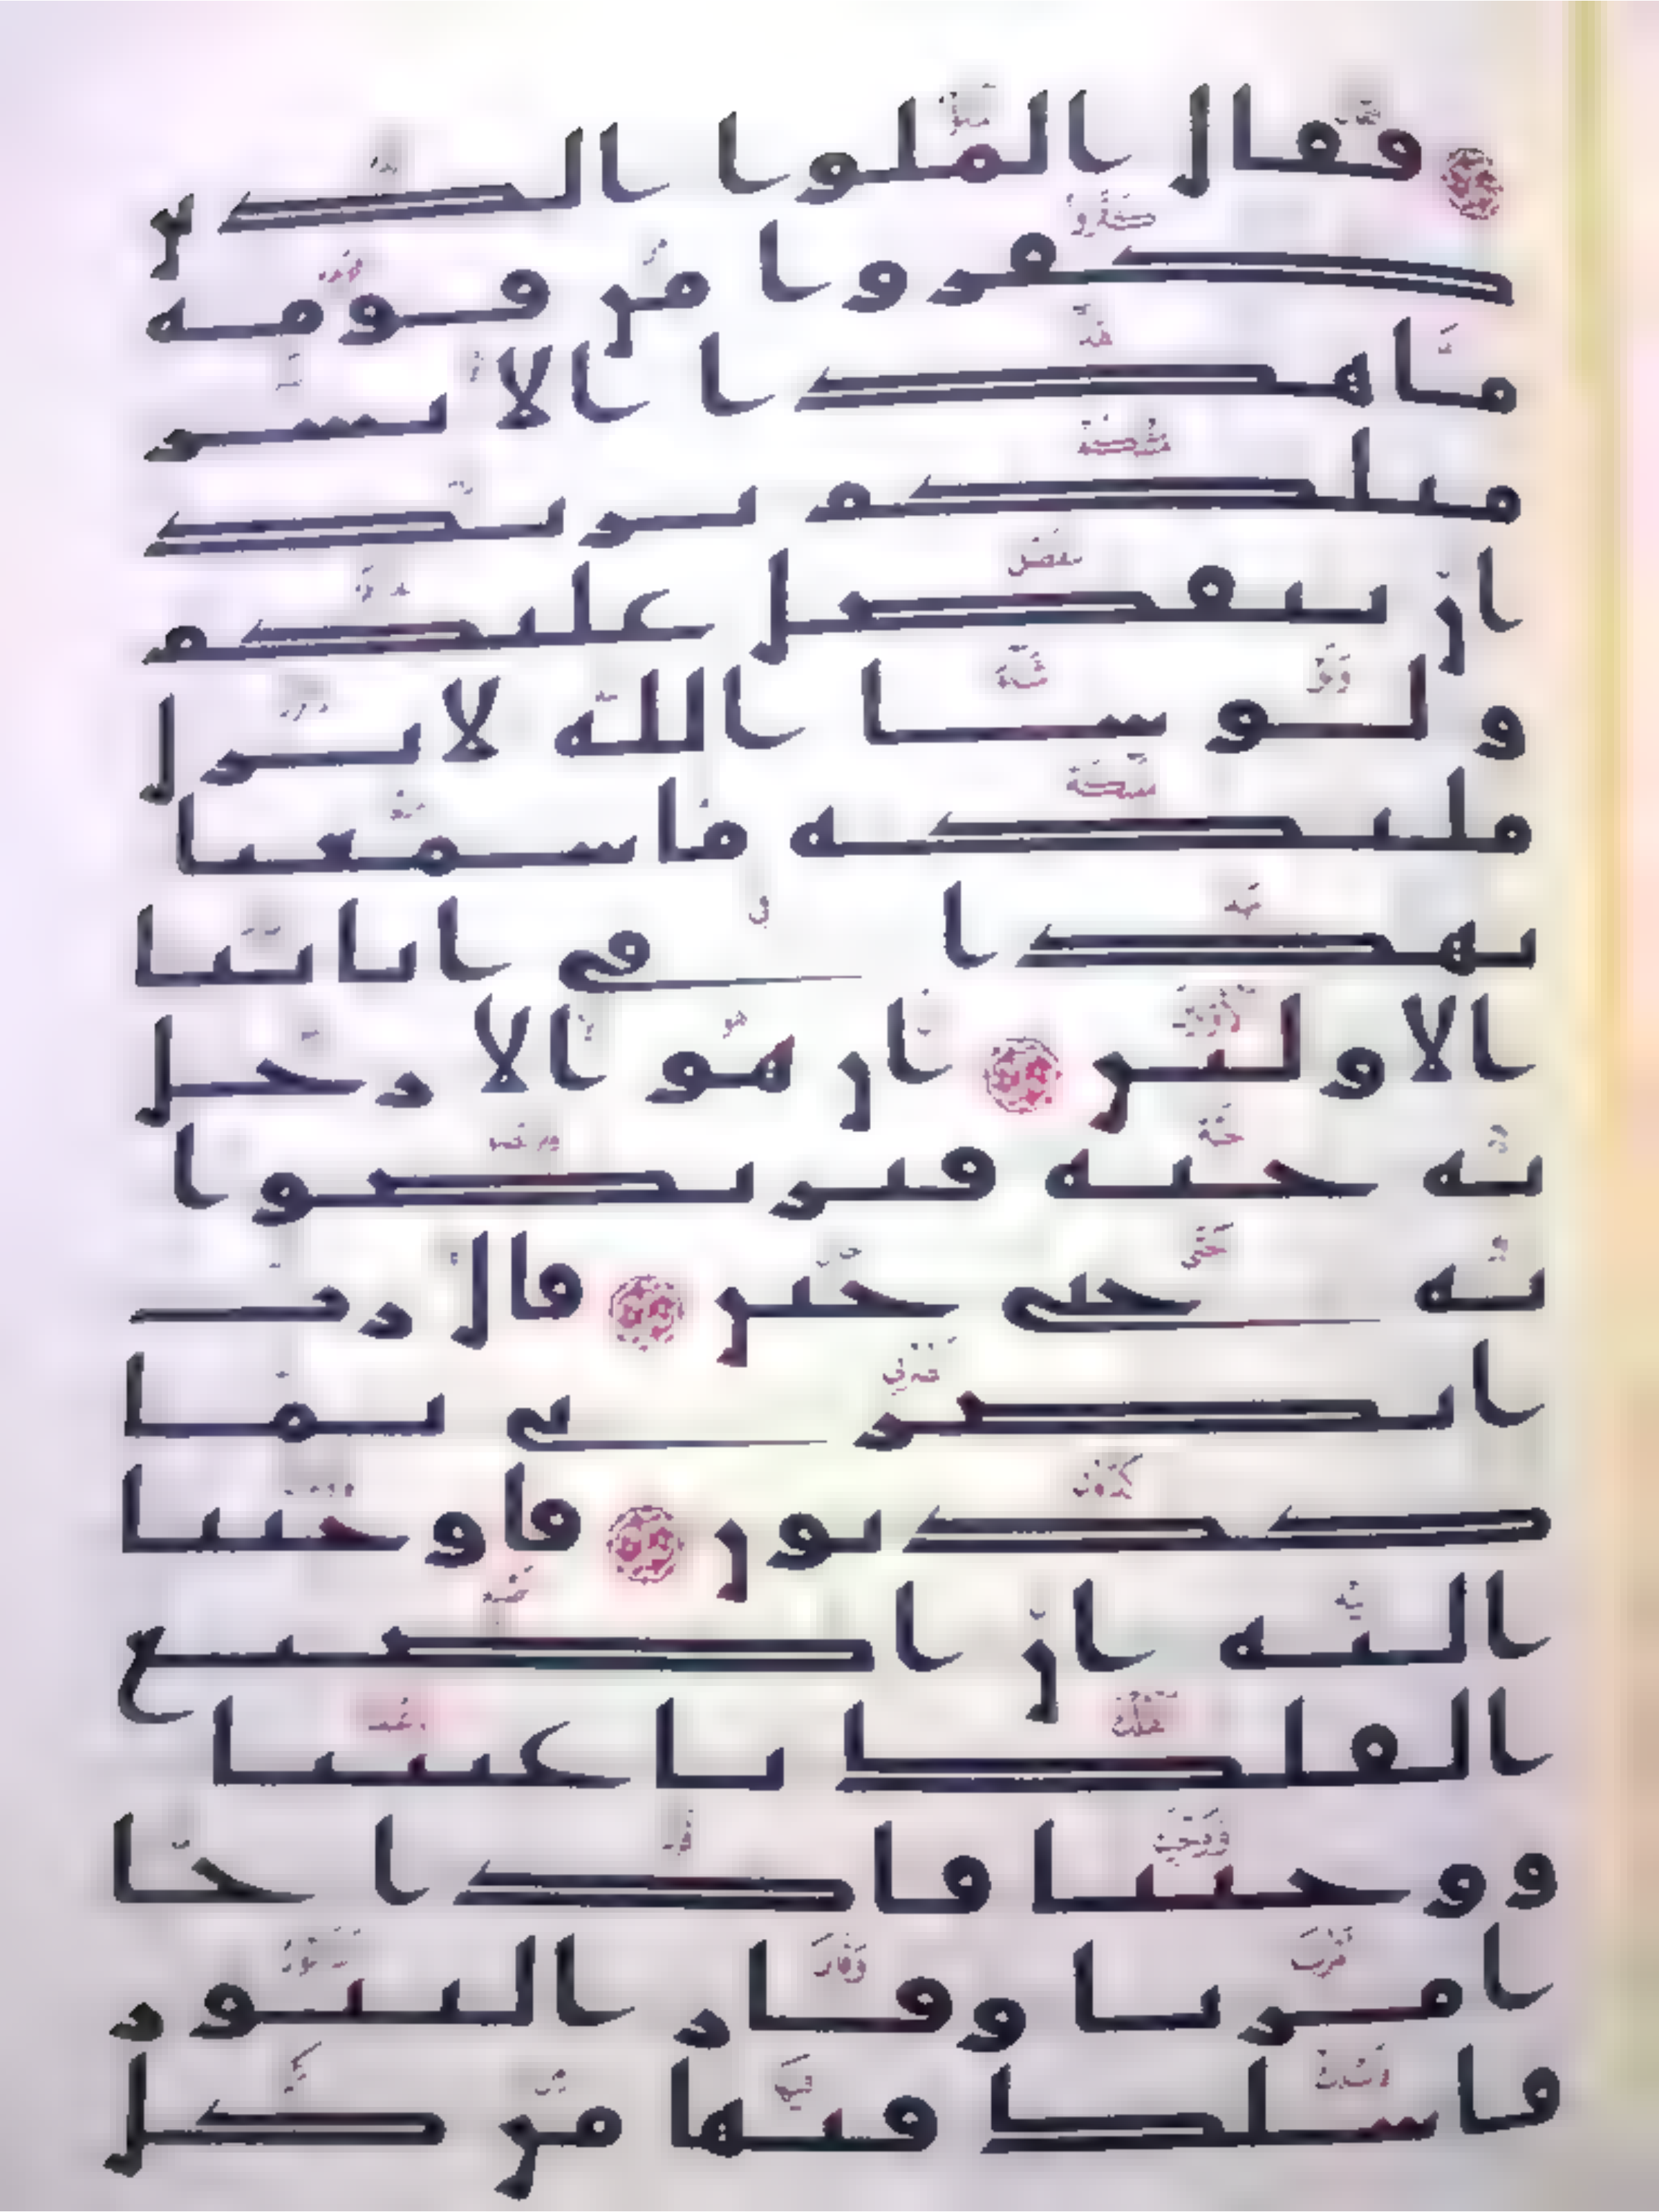 فقال الملوا الذين
كفروا من قومه
ما هذا الا بشر
مثلكم يريد
ان يتفضل عليكم
و لو شا الله لانزل
مليكه ما سمعنا
بهذا في اباينا
الاولين ان هو الا رجل
به جنه فتربصوا
به حتى حين قال رب
انصرني بما
كذبون فاوحينا
اليه ان اصنع
الفلك باعيننا
ووحينا فاذا جا
امرنا وفار التنور
فاسلك فيها من كل